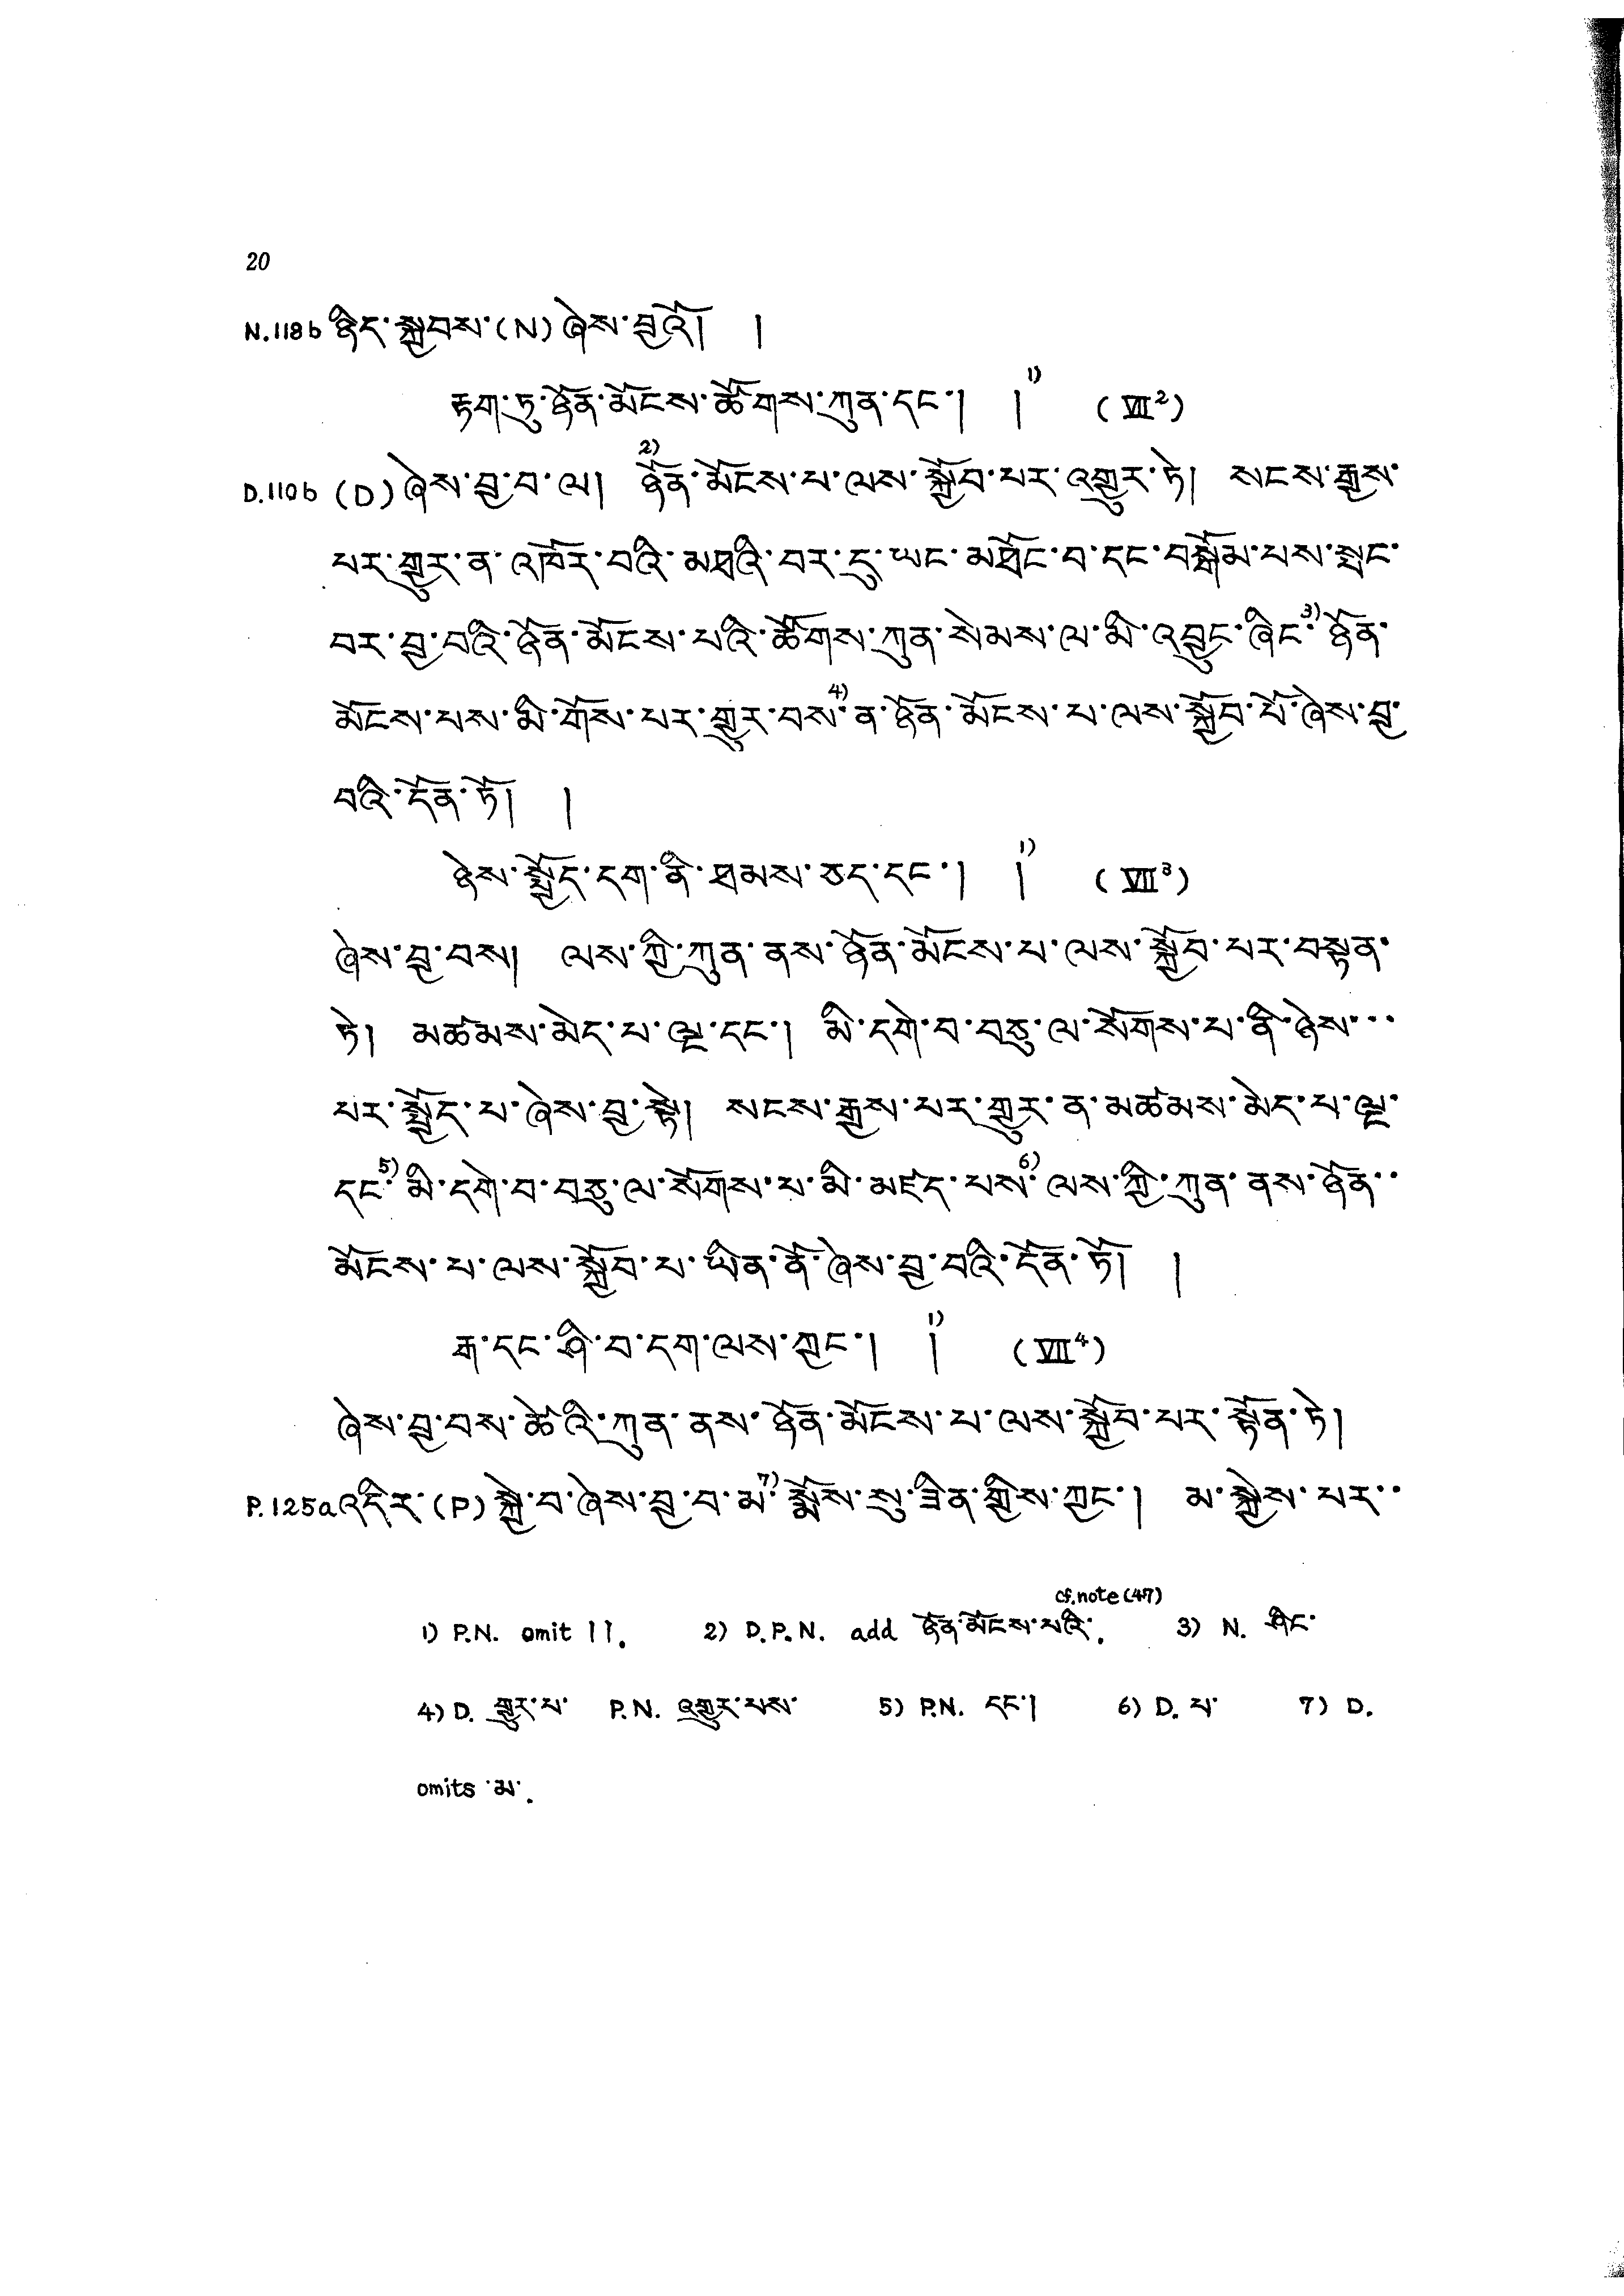 20
N.118b ཉིད་སྐྱབས་(N)ཞེས་བྱའོ། །
རྟག་ཏུ་ཉོན་མོངས་ཚོགས་ཀུན་དང་། །1) (VII2)
D.110b (D)ཞེས་བྱ་བ་ལ། 2)ཉོན་མོངས་པ་ལས་སྐྱོབ་པར་འགྱུར་ཏེ། སངས་རྒྱས་
པར་གྱུར་ན་འཁོར་བའི་མཐའི་བར་དུ་ཡང་མཐོང་བ་དང་བསྒོམ་པས་སྤང་
བར་བྱ་བའི་ཉོན་མོངས་པའི་ཚོགས་ཀུན་སེམས་ལ་མི་འབྱུང་ཞིང་3)ཉོན་
མོངས་པས་མི་གོས་པར་གྱུར་བས་4)ན་ཉོན་མོངས་པ་ལས་སྐྱོབ་པོ་ཞེས་བྱ་
བའི་དོན་ཏོ། །
ཉེས་སྤྱོད་དག་ནི་ཐམས་ཅད་དང་། །1) (VII3)
ཞེས་བྱ་བས། ལས་ཀྱི་ཀུན་ནས་ཉོན་མོངས་པ་ལས་སྐྱོབ་པར་བསྟན་
ཏེ། མཚམས་མེད་པ་ལྔ་དང་། མི་དགེ་བ་བཅུ་ལ་སོགས་པ་ནི་ཉེས་་་
པར་སྤྱོད་པ་ཞེས་བྱ་སྟེ། སངས་རྒྱས་པར་གྱུར་ན་མཚམས་མེད་པ་ལྔ་
དང་5)མི་དགེ་བ་བཅུ་ལ་སོགས་པ་མི་མཛད་པས་6)ལས་ཀྱི་ཀུན་ནས་ཉོན་་
མོངས་པ་ལས་སྐྱོབ་པ་ཡིན་ནོ་ཞེས་བྱ་བའི་དོན་ཏོ། །
རྒ་དང་ཤི་བ་དག་ལས་ཀྱང་། །1) (VII4)
ཞེས་བྱ་བས་ཚེའི་ཀུན་ནས་ཉོན་མོངས་པ་ལས་སྐྱོབ་པར་སྟོན་ཏེ།
P.125a འདིར་(P)སྐྱེ་བ་ཞེས་བྱ་བ་མ་7)སྨོས་སུ་ཟིན་གྱིས་ཀྱང་། མ་སྐྱེས་པར་་
cf.note(47)
1) P.N. omit །།. 2) D.P.N. add ཉོན་མོངས་པའི་. 3) N. ཤིང་
4) D. གྱུར་པ་ P.N. འགྱུར་པས་ 5) P.N. དང་། 6) D. པ་ 7) D.
omits ་མ་.